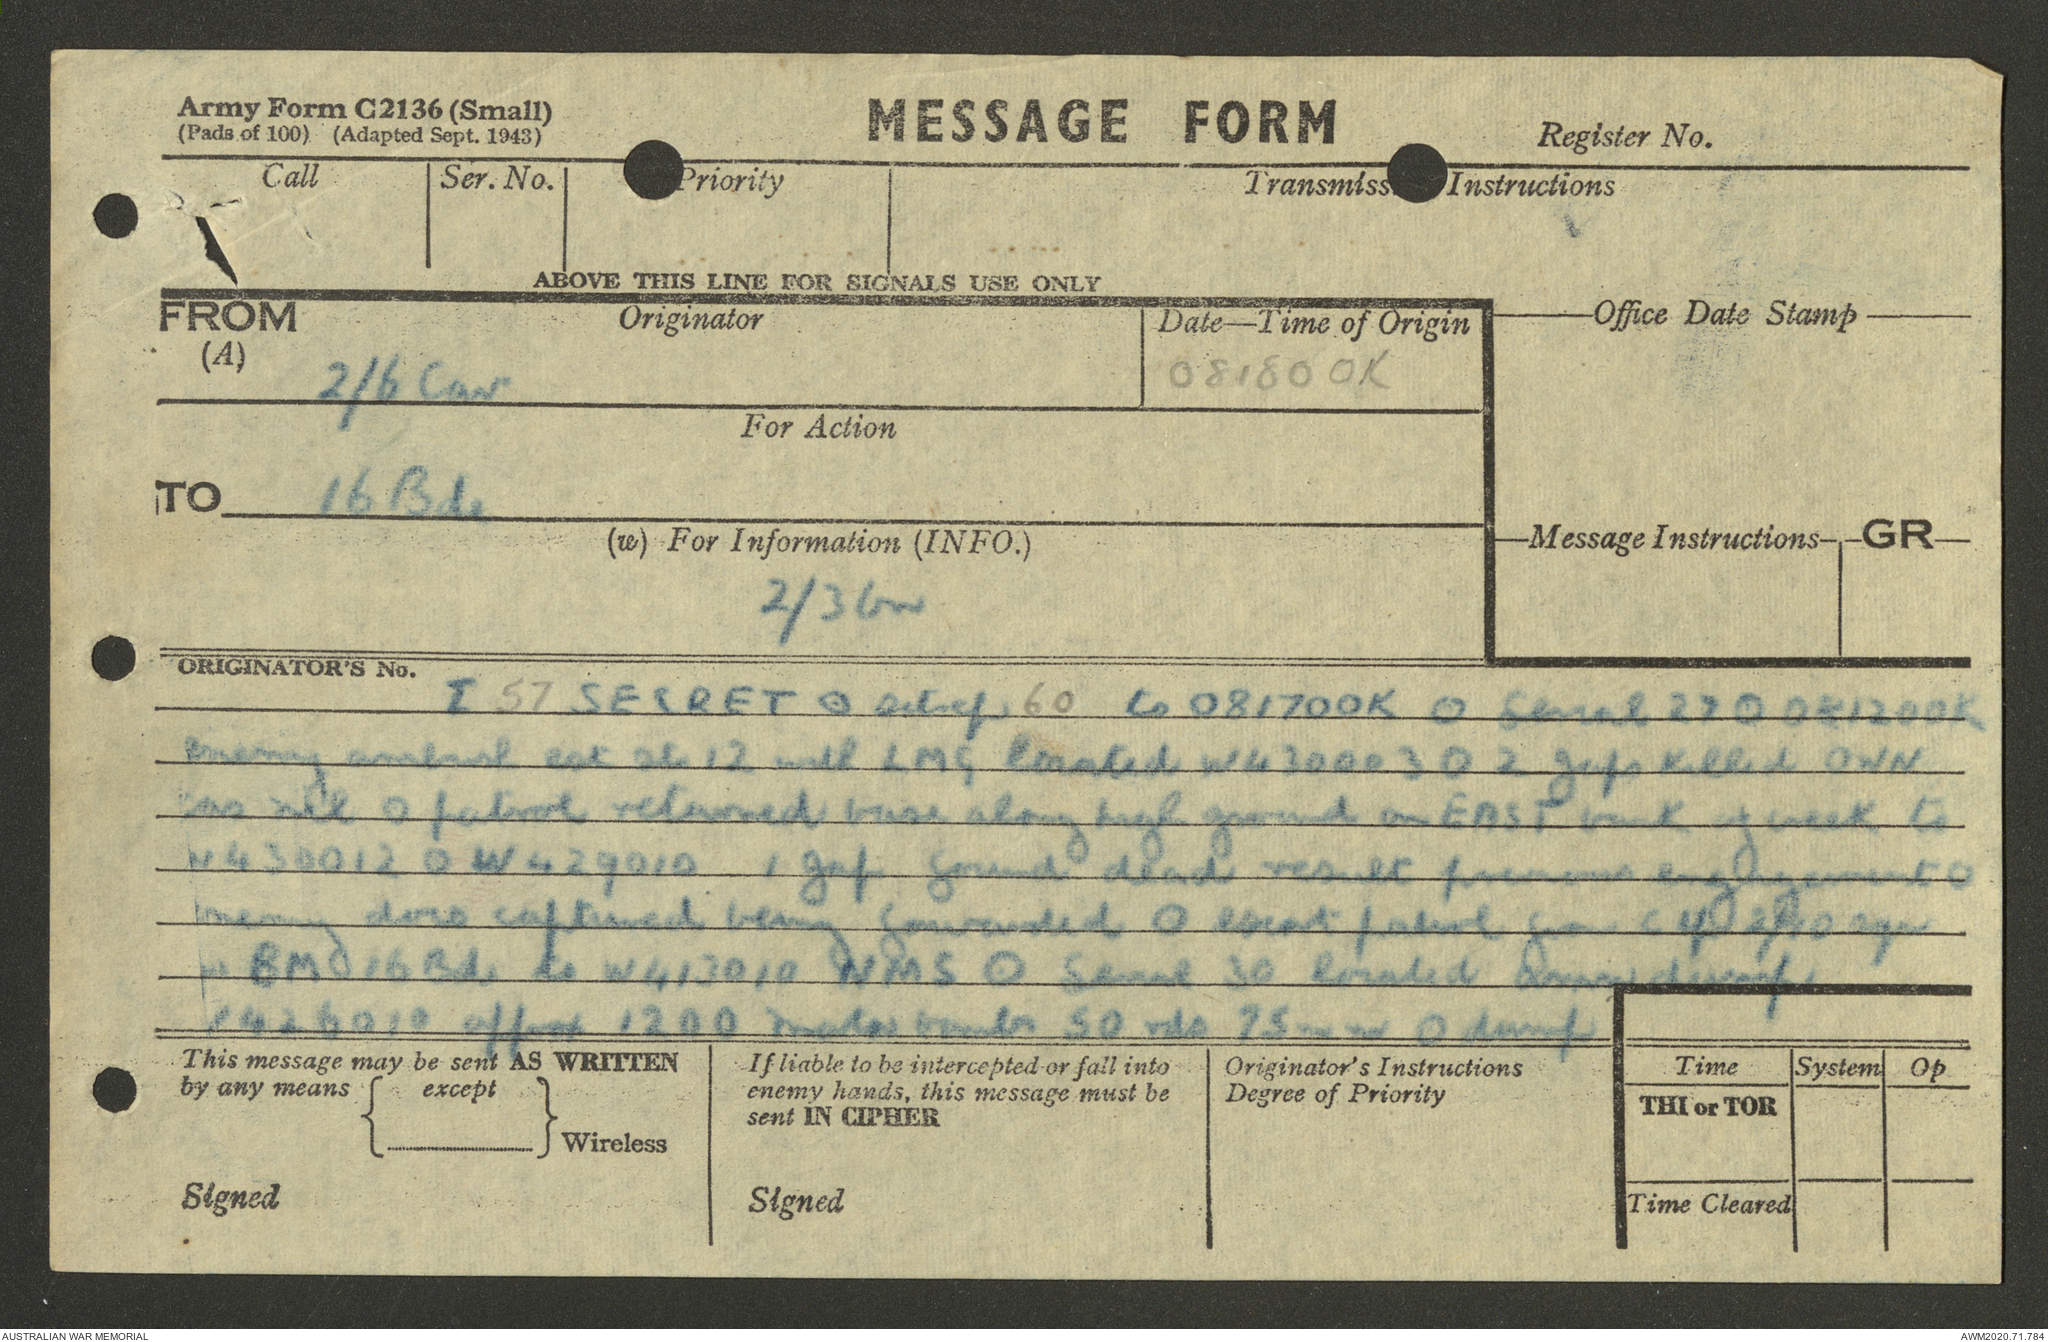 Army Form C2136 (Small)
(Pads of 100) (Adapted Sept. 1943)
MESSAGE FORM
Register No.
Call
Ser. No.
Priority
Transmiss Instructions
ABOVE THIS LINE FOR SIGNALS USE ONLY
FROM
(A)
Originator
2/6 Cav
Date—Time of Origin
081800K
Office Date Stamp
For Action
TO
16 Bde
(w) For Information (INFO.)
2/3 bn
Message Instructions
GR
ORIGINATOR'S No.
I 57 SECRET O Sitrep 60 to 081700K O Serial 29 O 081200K
enemy ambush est str 12 with LMG located W430003 O 2 japs killed OWN
cas nil O patrol returned base along high ground on EAST bank of creek to
W430012 O W429010 1 jap found dead result previous engagement O
enemy docs captured being forwarded O escort patrol from C
BM 16 Bde to W413010 NMS O Serial 30 located dump
426010 approx 1200 mortar bombs 50 rds 75 mm O dump
This message may be sent AS WRITTEN
by any means { except } Wireless
Signed
If liable to be intercepted or fall into
enemy hands, this message must be
sent IN CIPHER
Signed
Originator's Instructions
Degree of Priority
Time
System
Op
THI or TOR
Time Cleared
AUSTRALIAN WAR MEMORIAL
AWM2020.71.784